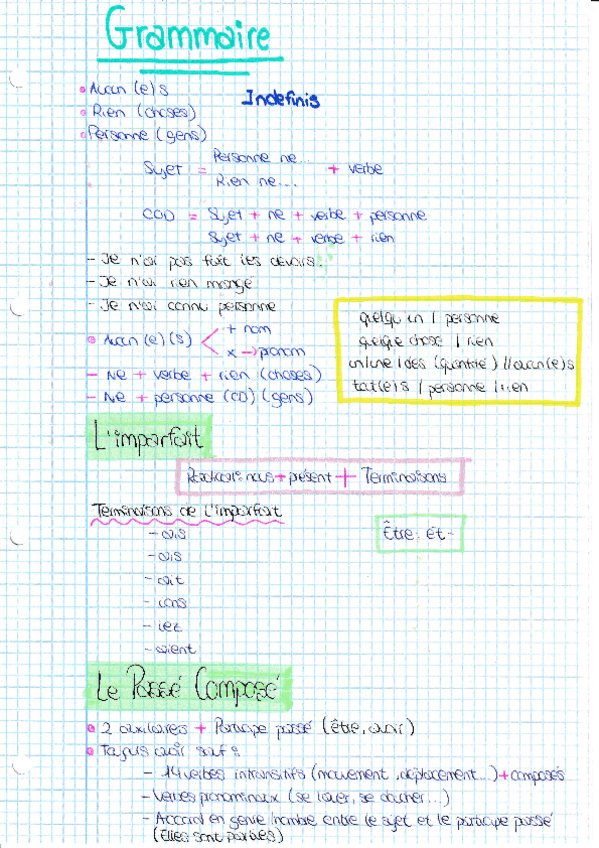 Grammaire
• Aucun (e)s
Indefinis
• Rien (choses)
• Personne (gens)
Sujet = Personne ne... + verbe
Rien ne...
COD = Sujet + ne + verbe + personne
Sujet + ne + verbe + rien
- Je n'ai pas fait les devoirs.
- Je n'ai rien mangé
- Je n'ai connu personne
• Aucun (e)(s) < + nom
x → pronom
- Ne + verbe + rien (choses)
- Ne + personne (CD) (gens)
quelqu'un / personne
quelque chose / rien
un/une / des (quantité) // aucun(e)s
tout(e)s / personne / rien
L'imparfait
nous + présent + Terminaisons
Terminaisons de L'imparfait
Être: ét-
- ais
- ais
- ait
- ions
- iez
- aient
Le Passé Composé
• 2 auxiliaires + Participe passé (être, avoir)
• Toujours avoir sauf:
- 14 verbes intransitifs (mouvement, déplacement...) + composés
- Verbes pronominaux (se laver, se doucher...)
- Accord en genre/nombre entre le sujet et le participe passé
(Elles sont parties)